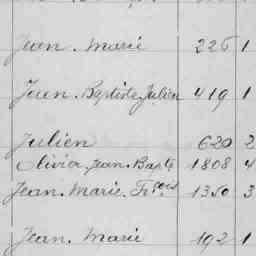 Jean. Marie 226 1
Jean. Baptiste Julien 419 1
Julien 620 2
Olivier Jean. Bapte 1808 4
Jean. Marie. Frçois 1350 3
Jean. Marie 192 1